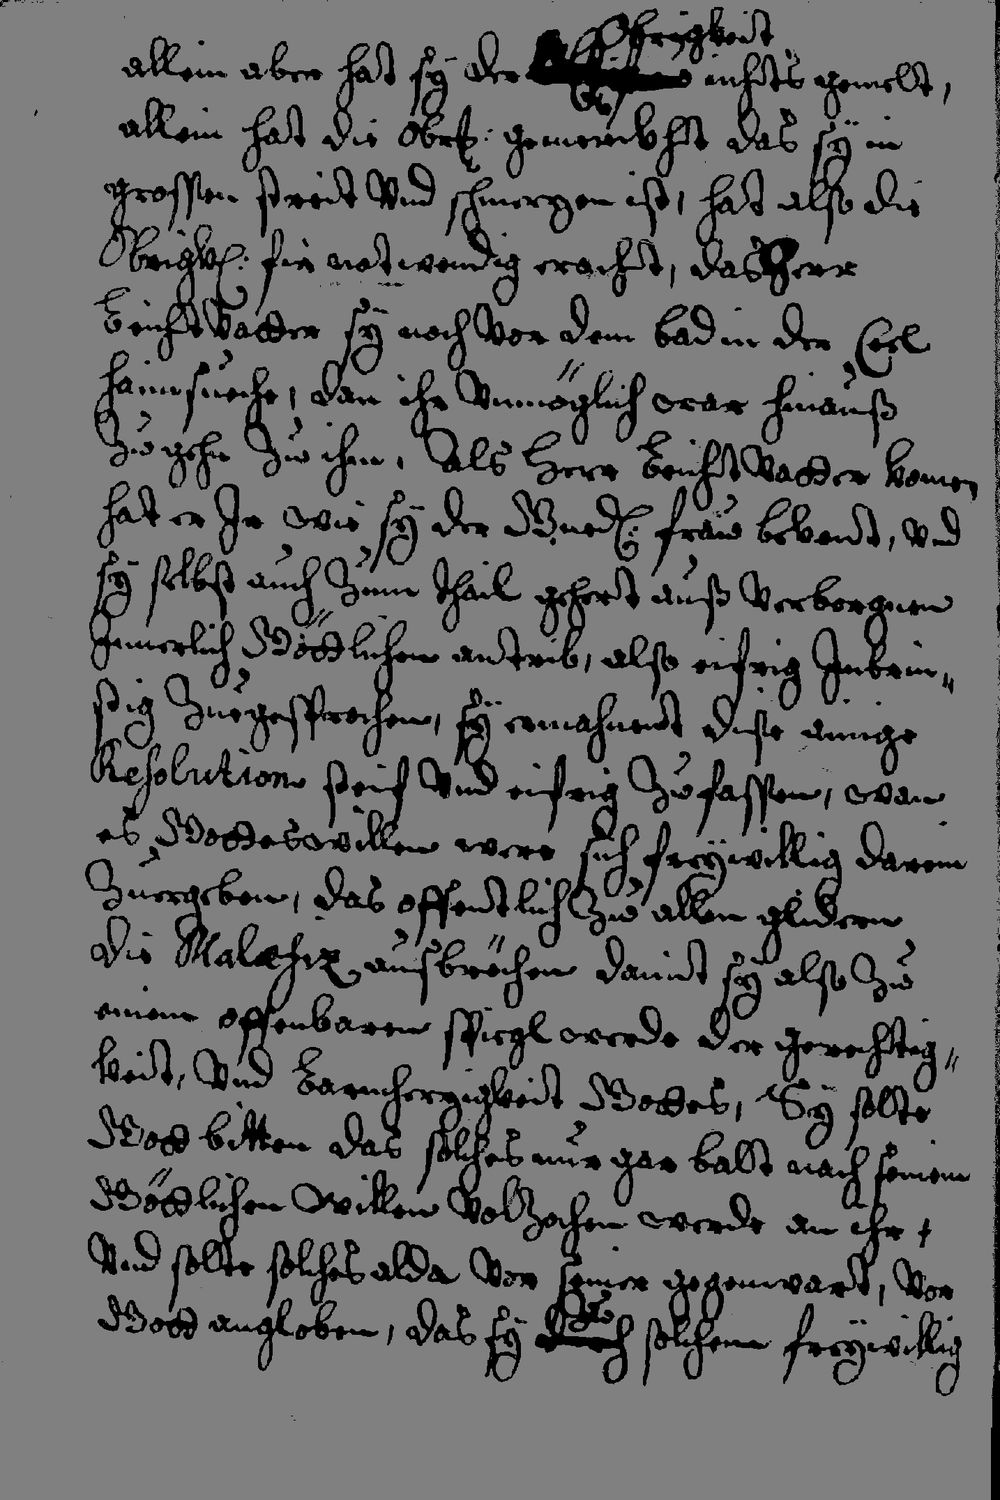 Obrigkeit
allein aber hat sÿ der nichts gemelt,
allein hat die Obrk: gemerckht das sÿ in
grossen streit Vnd schmerzen ist, hat also die
Obrigk: fir notwendig eracht, das Herr
beicht Vatter sÿ noch Vor dem bad in der Cell
haimsueche, dan ihr Vnmöglich war hinauß
Zu gehn Zu ihm, Als Herr beicht Vatter komen
hat er Ir wie sÿ der Gned: frau bekent, Vnd
sÿ selbst auch Zum thail gehert auß Verborgnen
Innerlich Göttlichen antrib, also eifrig Inbrin„
stig Zuegesprochen, sÿ ermahnent dise ainige
Resolution steif Vnd eifrig Zu fassen, wan
es Gottes willen were sich freÿwillig darein
Zuergeben, das offentlich Zu allen glidern
die Malefiz ausbrechen damit sÿ also Zu
einem offenbaren spiegl werde der gerechtig„
keit, Vnd barmherzigkeit Gottes, Sÿ solte
Gott bitten das solches nur gar balt nach seinem
Göttlichen willen Volzochen werde an ihr,
Vnd solte solches alda Vor seiner gegenwart, Vor
Gott angloben, das sÿ solchem freÿwillig